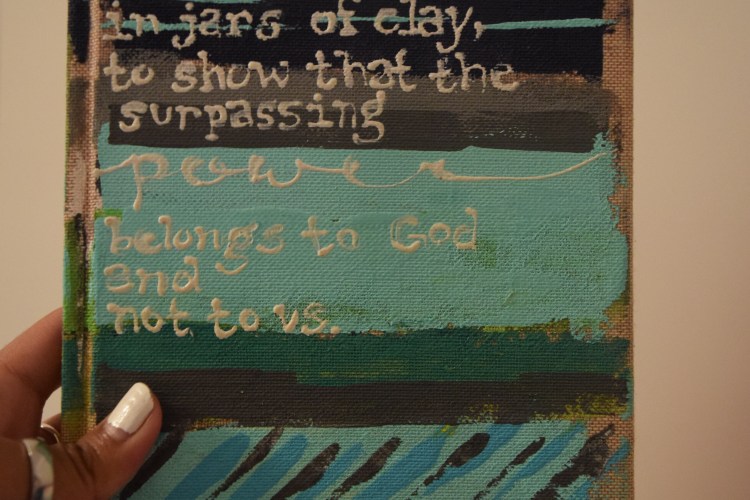 in jars of clay,
to show that the
surpassing
power
belongs to God
and
not to us.